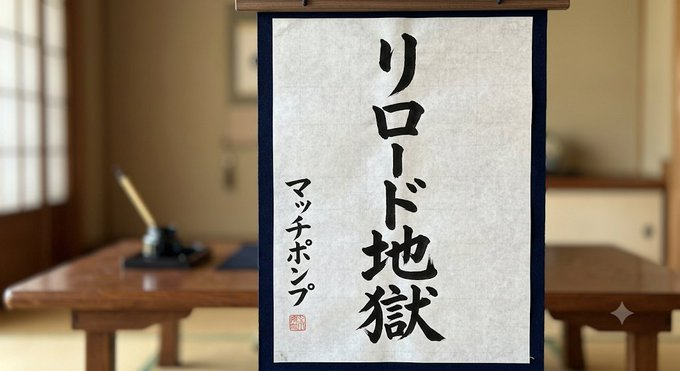 リロード地獄
マッチポンプ